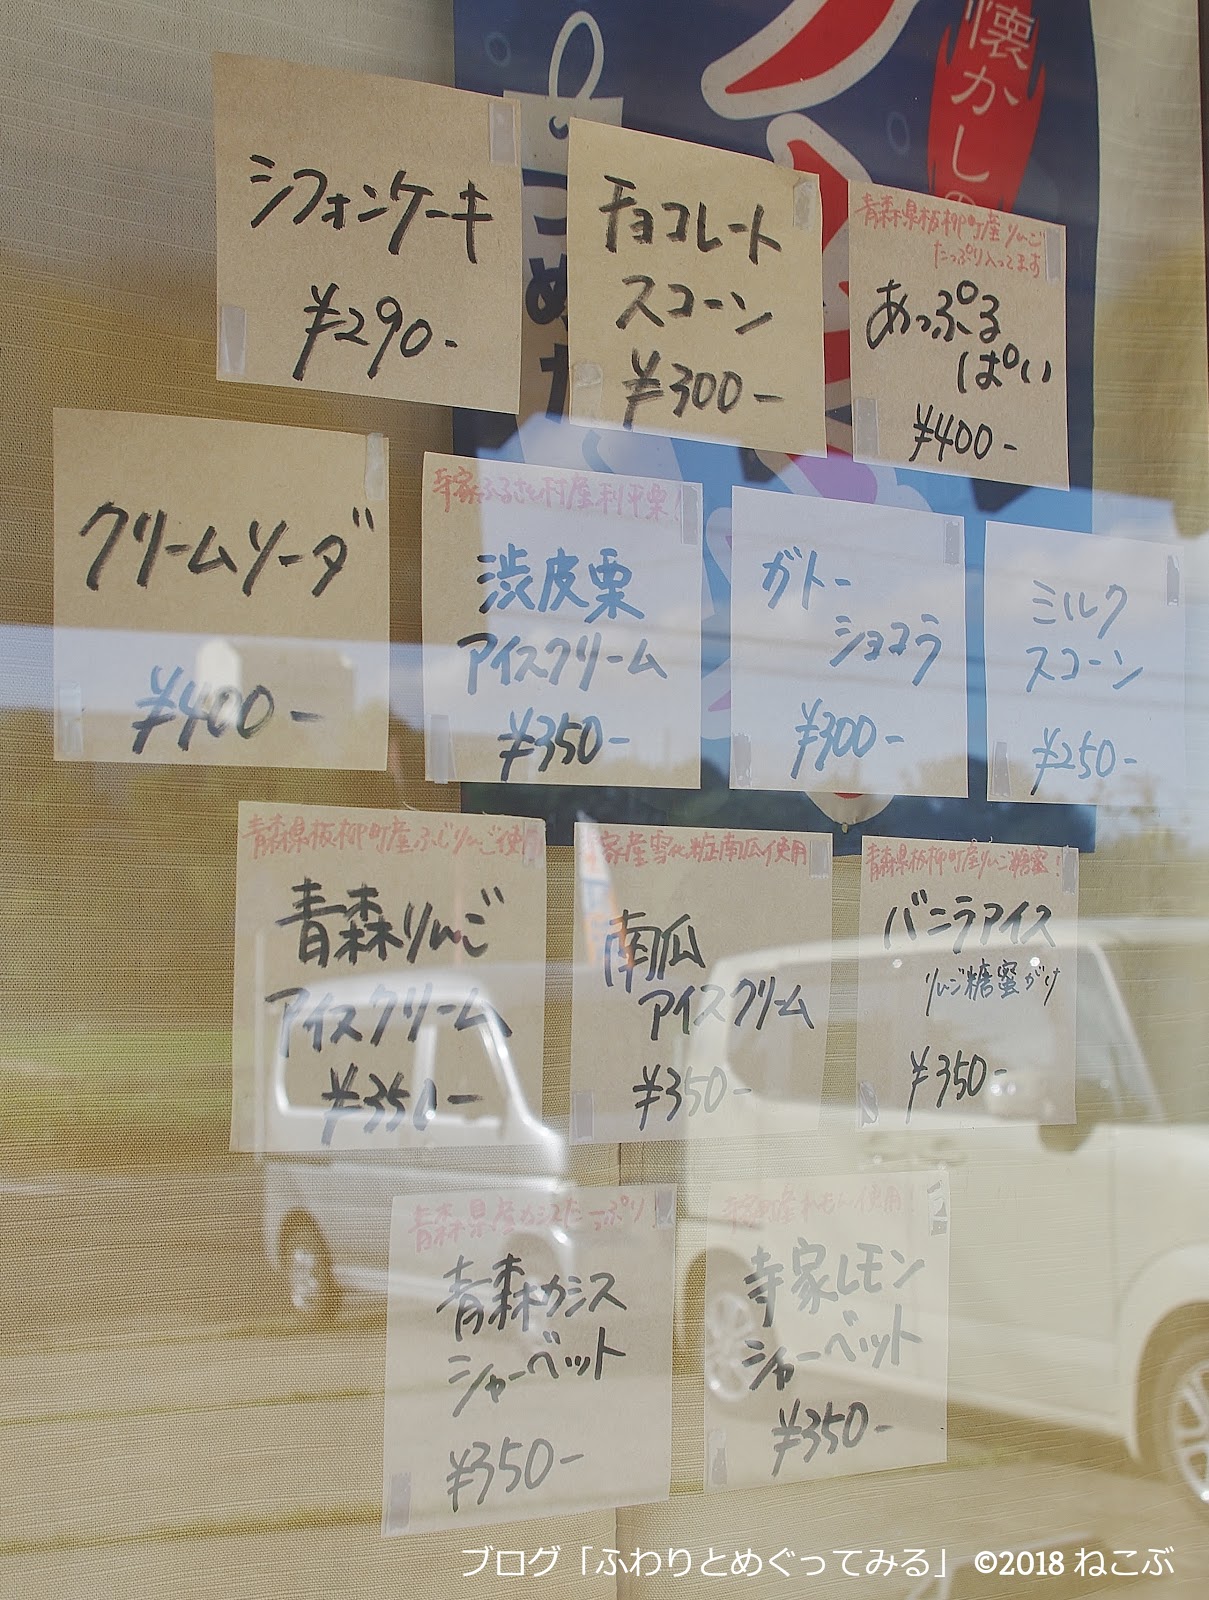 懐かしの
つめた
シフォンケーキ
¥290-
チョコレート
スコーン
¥300-
青森県板柳町産りんご
たっぷり入ってます
あっぷる
ぱい
¥400-
クリームソーダ
¥400-
寺家ふるさと村産利平栗!
渋皮栗
アイスクリーム
¥350-
ガトー
ショコラ
¥300-
ミルク
スコーン
¥250-
青森県板柳町産ふじりんご使用
青森りんご
アイスクリーム
¥350-
家産雪化粧南瓜使用
南瓜
アイスクリーム
¥350-
青森県板柳町産りんご糖蜜!
バニラアイス
りんご糖蜜がけ
¥350-
青森県産カシスたっぷり!
青森カシス
シャーベット
¥350-
寺家町産れもん使用!
寺家レモン
シャーベット
¥350-
ブログ「ふわりとめぐってみる」 ©2018 ねこぶ